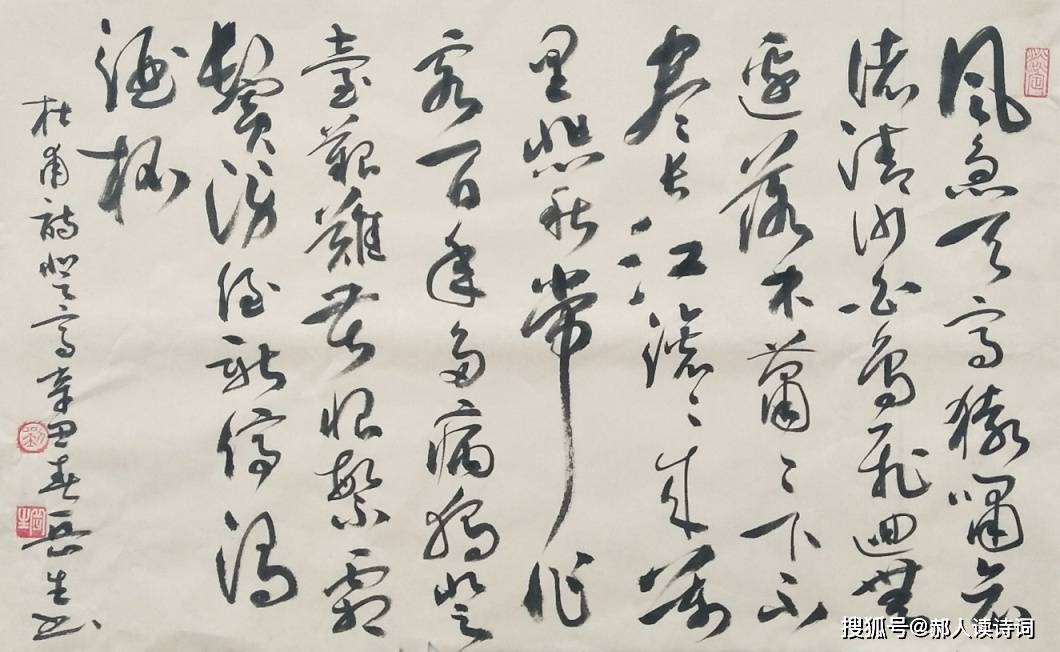 風急天高猿嘯哀
渚清沙白鳥飛迴無
邊落木蕭〻下不
盡長江滚〻来萬
里悲秋常作
客百年多病獨登
臺艱難苦恨繁霜
鬢潦倒新停濁
酒杯
杜甫詩登高辛丑春岳生书
搜狐号@郝人读诗词